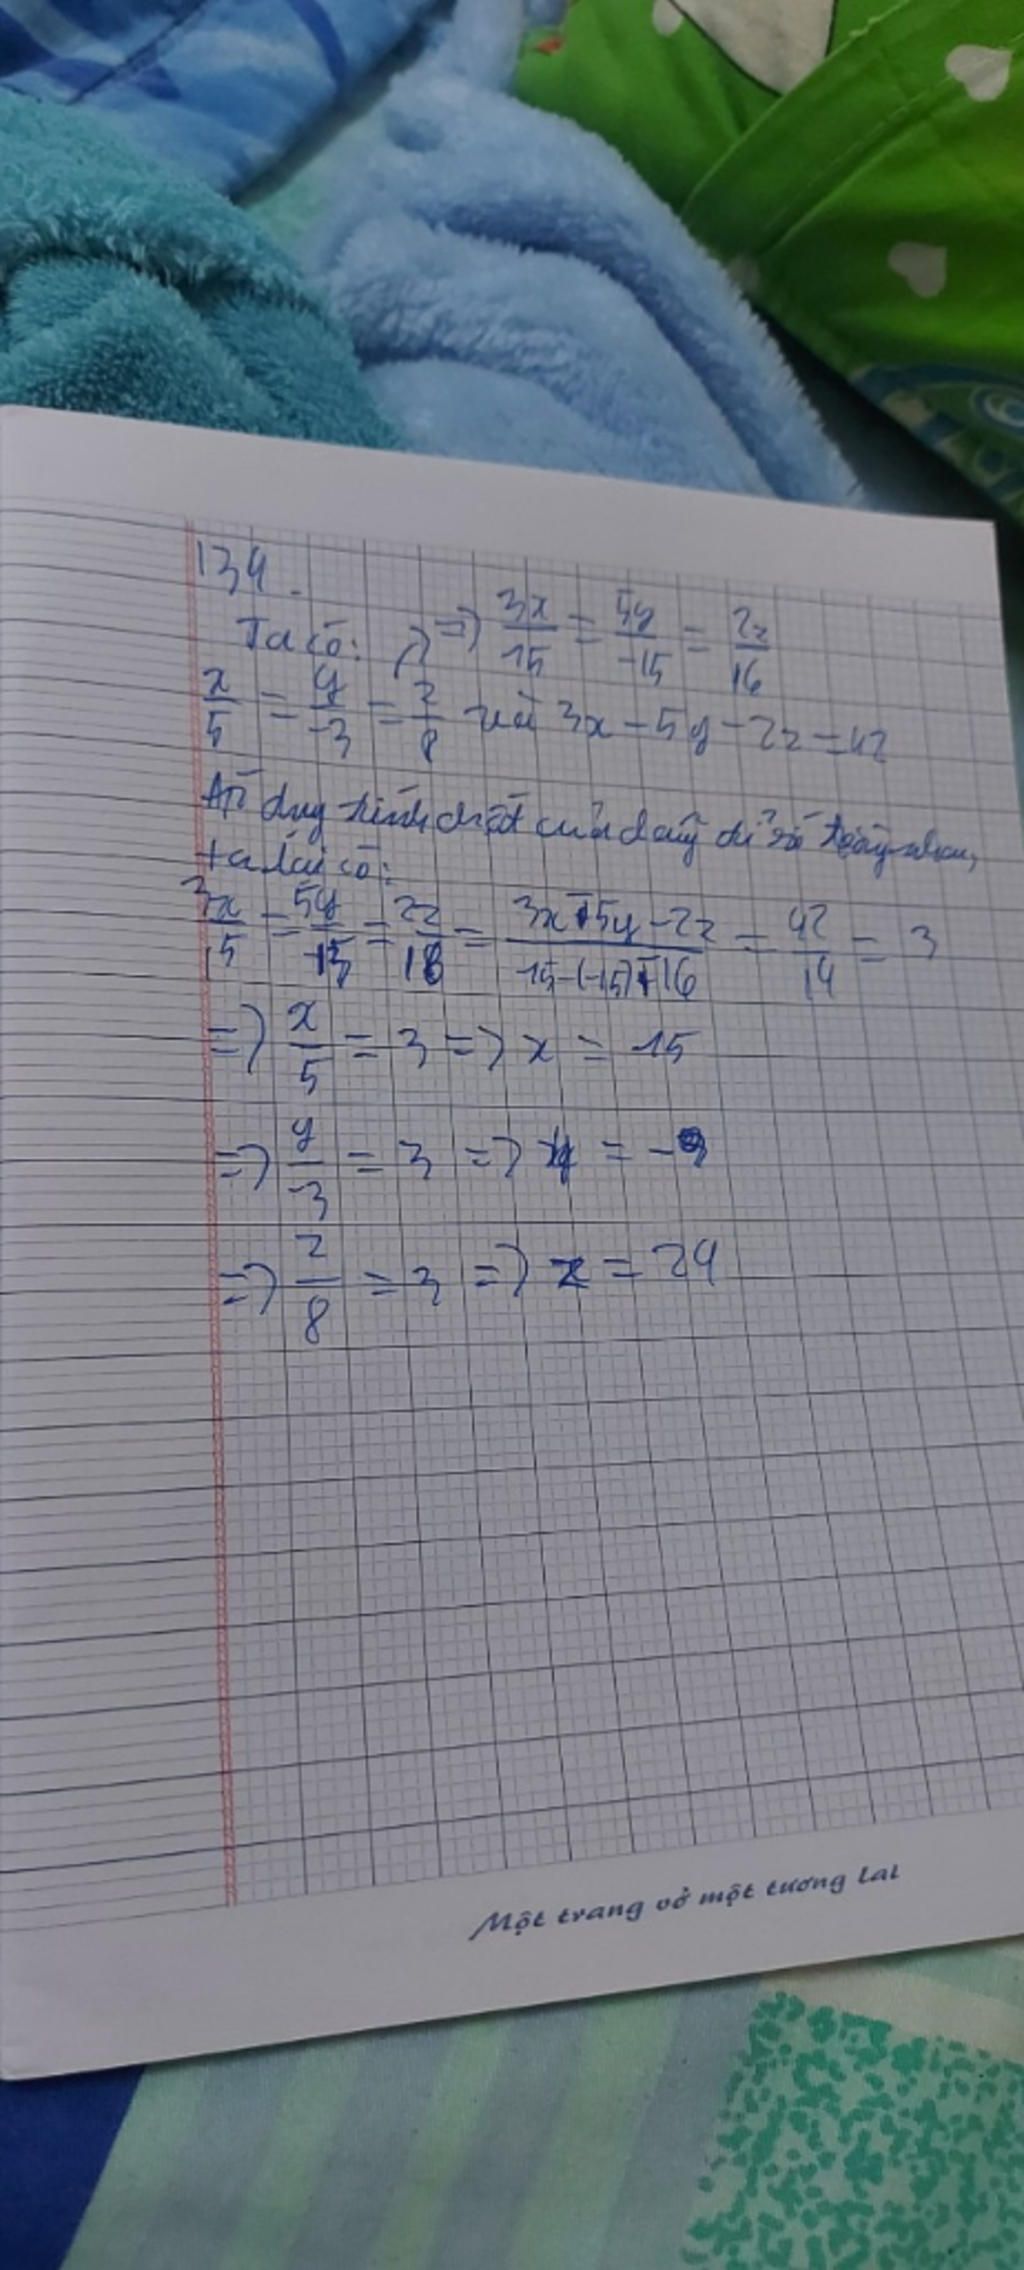 134.
Ta có: => 3x/15 = 5y/-15 = 2z/16
x/5 = y/-3 = z/8 và 3x - 5y - 2z = 42
Áp dụng tính chất của dãy tỉ số bằng nhau,
ta lại có:
3x/15 = 5y/-15 = 2z/16 = 3x-5y-2z/15-(-15)-16 = 42/14 = 3
=> x/5 = 3 => x = 15
=> y/-3 = 3 => y = -9
=> z/8 = 3 => z = 24
Một trang vở một tương lai